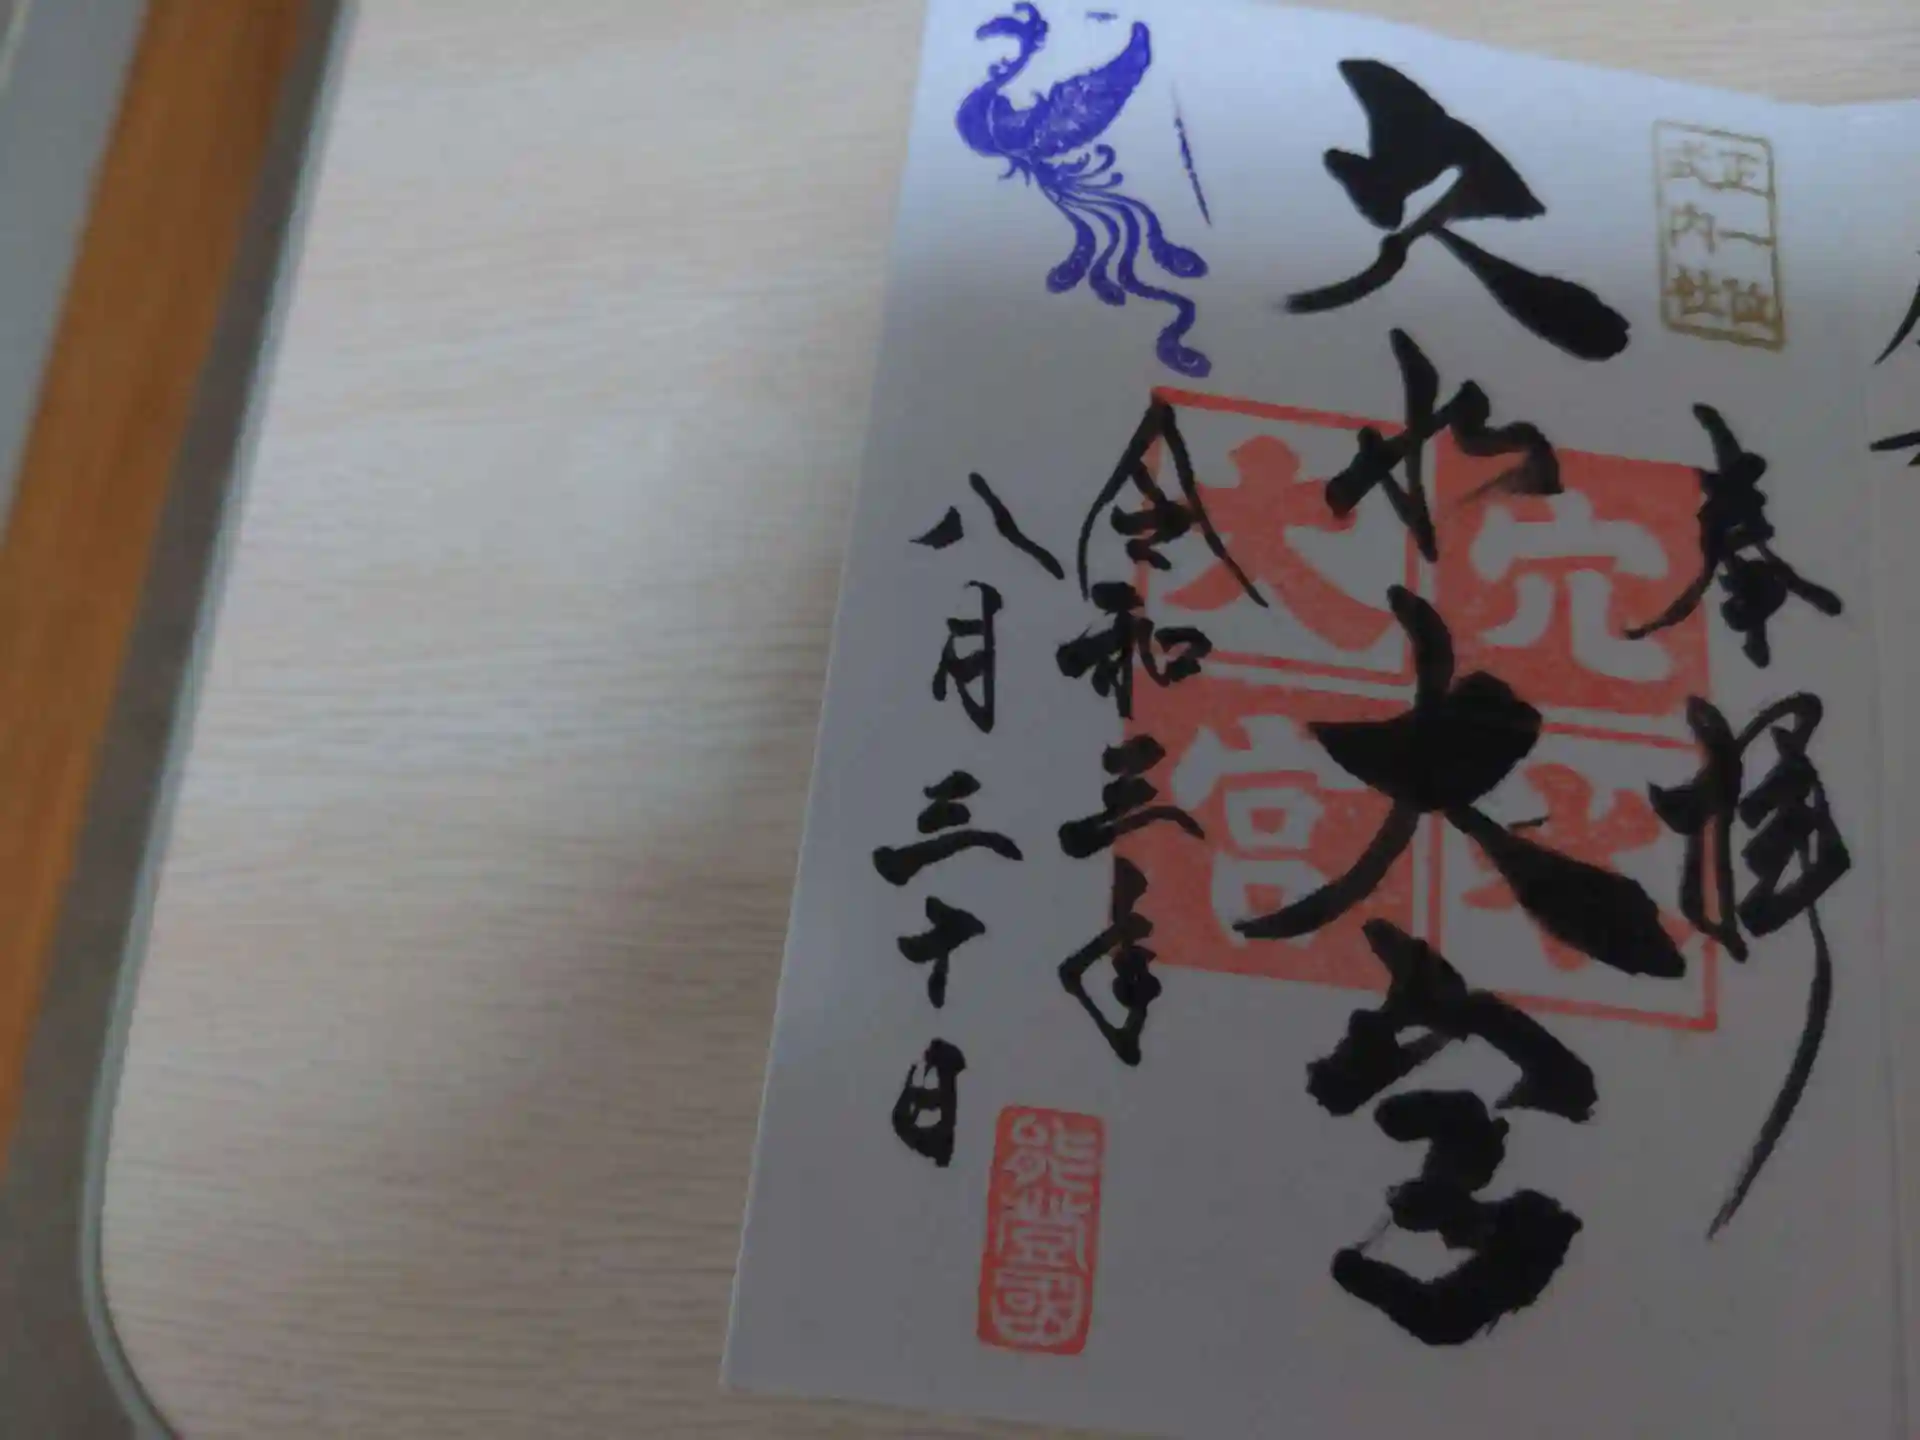 正一位
式内社
奉拝
穴水大宮
穴水
大宮
令和三年
八月三十日
能登國